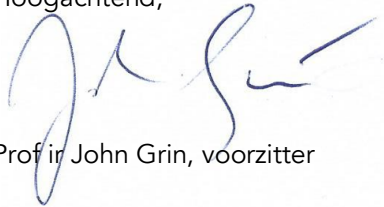 Hoogachtend,
John Grin
Prof ir John Grin, voorzitter